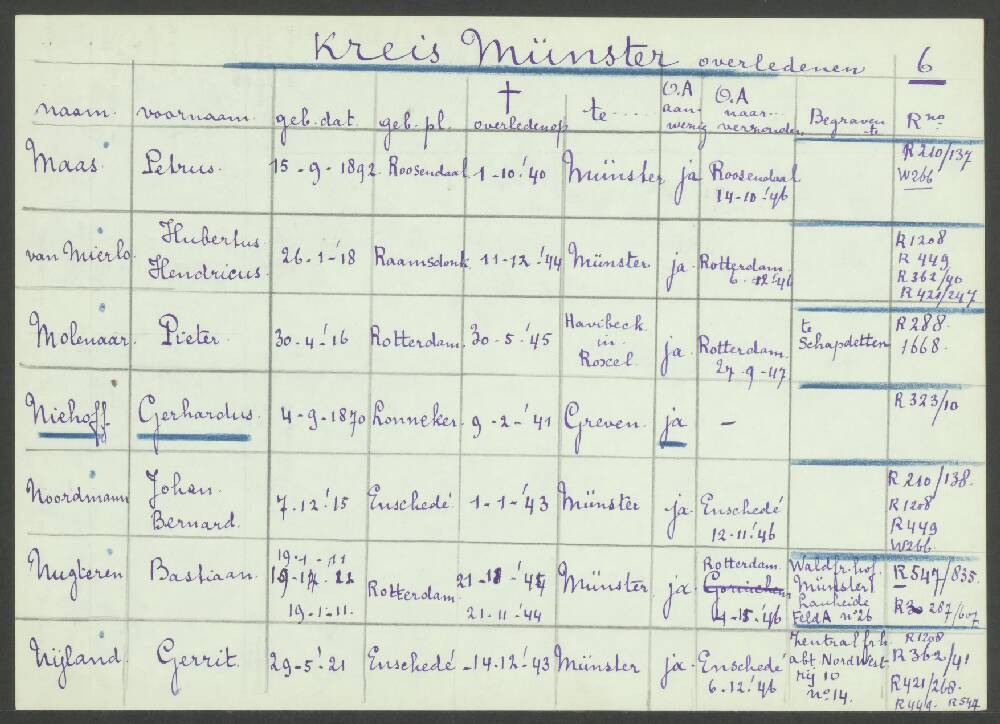 Kreis Münster overledenen 6
naam. voornaam. geb. dat. geb. pl. † overleden op te ..... O.A aanwezig O.A naar... verzonden Begraven te R no
Maas. Petrus. 15-9-1892. Roosendaal 1-10-'40 Münster ja Roosendaal 14-10-'46 R210/137 W266
van Mierlo. Hubertus Hendricus. 26-1-'18 Raamsdonk. 11-12-'44 Münster. ja. Rotterdam. 6-12-'46 R1208 R449 R362/40 R421/247
Molenaar. Pieter. 30-4-'16 Rotterdam. 30-5-'45 Havibeck in Roxel. ja. Rotterdam. 27-9-'47 te Schapdetten R288. 1668.
Niehoff. Gerhardus. 4-9-1870 Lonneker. 9-2-'41 Greven. ja - R323/10
Noordmann Johan. Bernard. 7-12-'15 Enschedé 1-1-'43 Münster ja. Enschedé 12-11-'46 R210/138. R1208 R449 W266
Nugteren Bastiaan. 19-1-11 19-1-11. Rotterdam. 21-11-'44 Münster. ja. Rotterdam. '46 Waldfr.hof. Münster Lauheide Feld A no 26 R547/835. 287/607
Nijland. Gerrit. 29-5-'21 Enschedé -14-12-'43 Münster ja. Enschedé 6-12-'46 Zentral frh abt. Nord West- rij 10 no 14. R1208 R362/41 R421/268. R449. R547